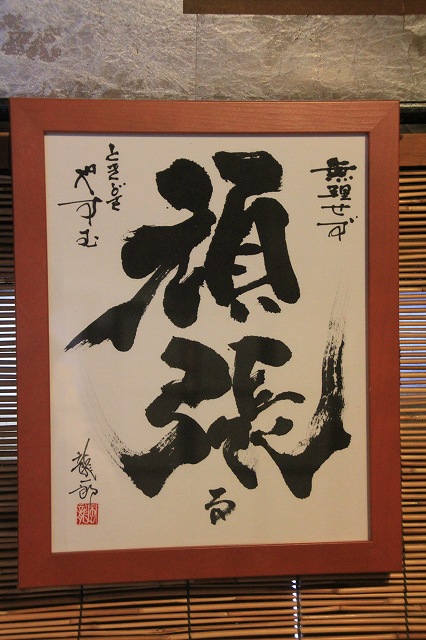 無理せず
頑張る
ときどき
やすむ